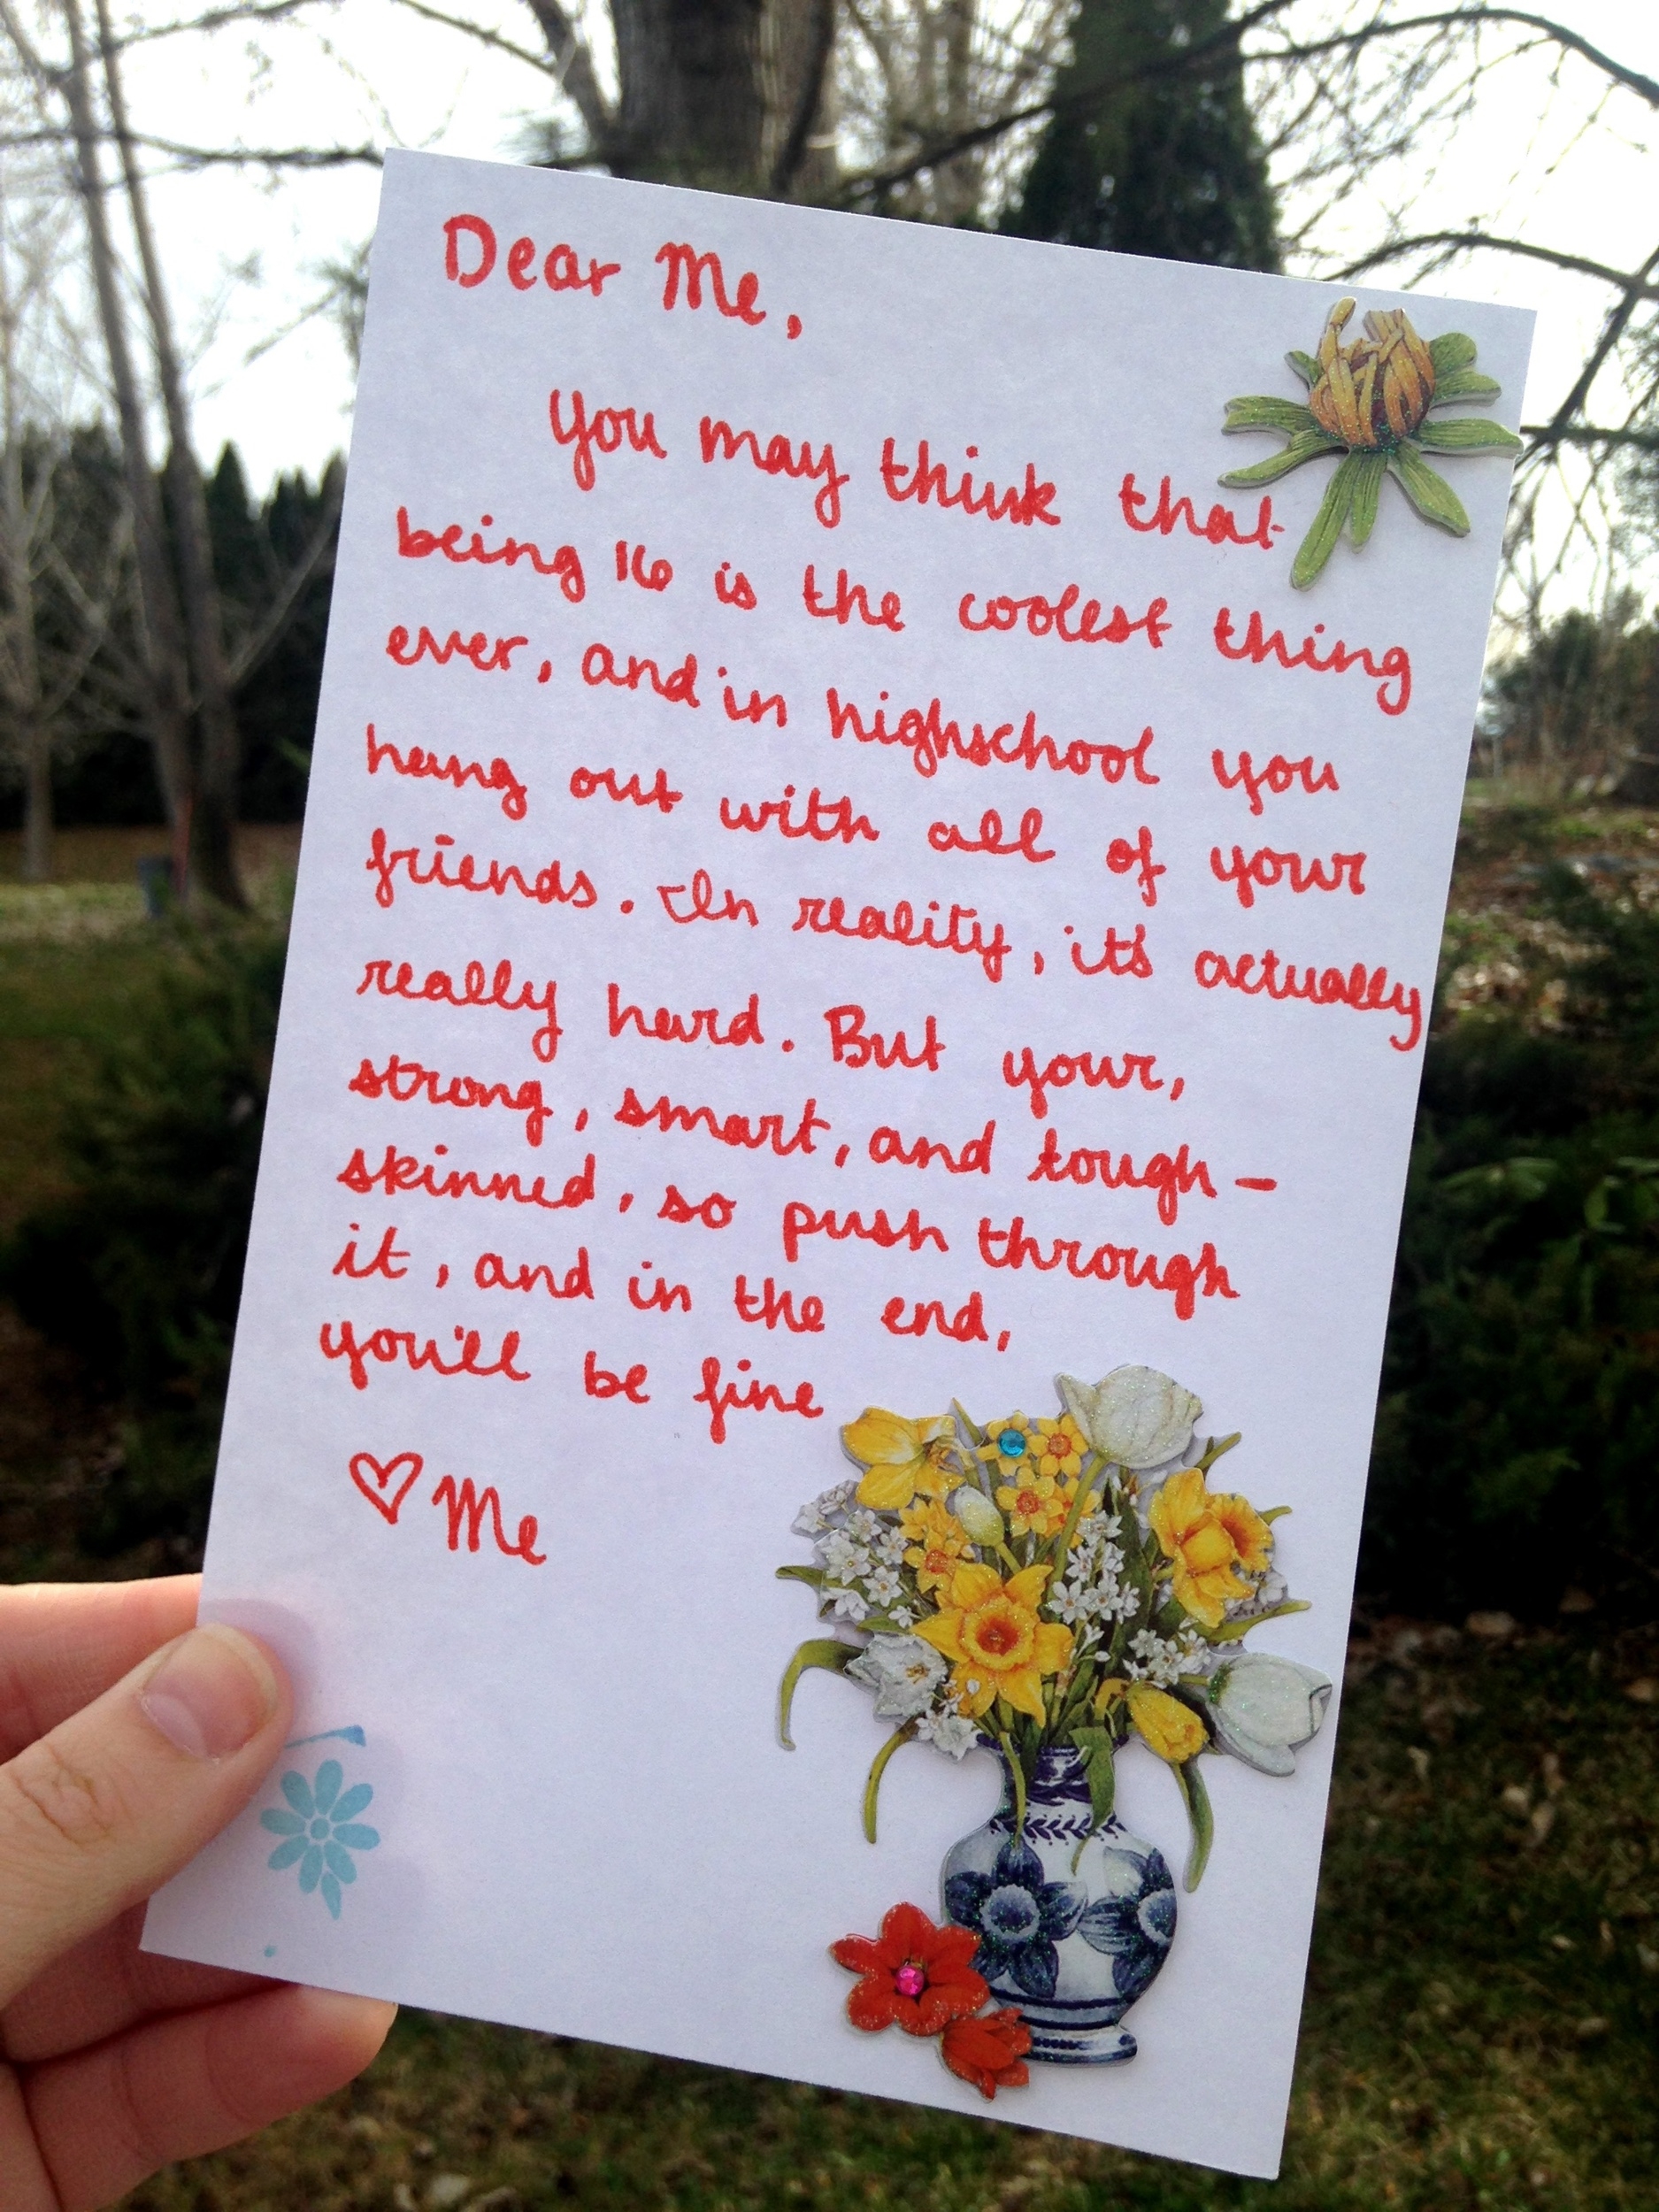 Dear Me,
you may think that
being 16 is the coolest thing
ever, and in highschool you
hang out with all of your
friends. In reality, it's actually
really hard. But your,
strong, smart, and tough-
skinned, so push through
it, and in the end,
you'll be fine
♡ Me